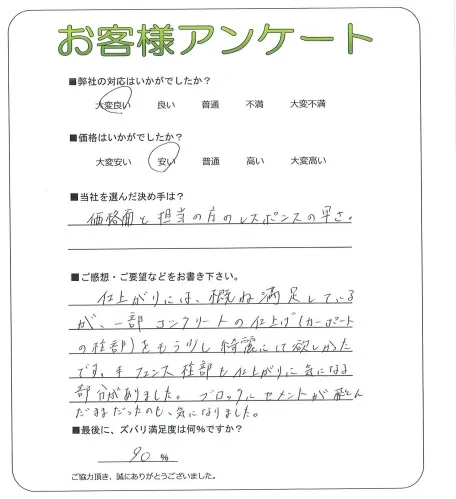 お客様アンケート
■弊社の対応はいかがでしたか？
大変良い 良い 普通 不満 大変不満
■価格はいかがでしたか？
大変安い 安い 普通 高い 大変高い
■当社を選んだ決め手は？
価格面と担当の方のレスポンスの早さ。
■ご感想・ご要望などをお書き下さい。
仕上がりには、概ね満足している
が、一部コンクリートの仕上げ(カーポート
の柱部)をもう少し綺麗にして欲しかった
です。フェンス柱部も仕上がりに気になる
部分がありました。ブロックにセメントが飛んだ
だままだったのも、気になりました。
■最後に、ズバリ満足度は何%ですか？
90 %
ご協力頂き、誠にありがとうございました。